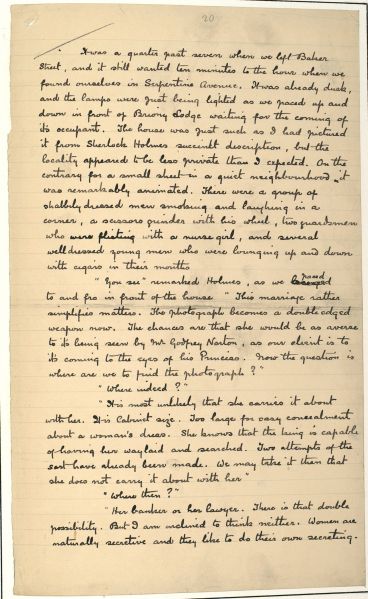 20
It was a quarter past seven when we left Baker
Street, and it still wanted ten minutes to the hour when we
found ourselves in Serpentine Avenue. It was already dusk,
and the lamps were just being lighted as we paced up and
down in front of Briony Lodge waiting for the coming of
its occupant. The house was just such as I had pictured
it from Sherlock Holmes succinct description, but the
locality appeared to be less private than I expected. On the
contrary for a small street in a quiet neighbourhood it
was remarkably animated. There were a group of
shabbily dressed men smoking and laughing in a
corner, a scissors grinder with his wheel, two guardsmen
who were flirting with a nurse girl, and several
well dressed young men who were lounging up and down
with cigars in their mouths
"You see" remarked Holmes, as we paced
to and fro in front of the house "This marriage rather
simplifies matters. The photograph becomes a double edged
weapon now. The chances are that she would be as averse
to its being seen by Mr Godfrey Norton, as our client is to
its coming to the eyes of his Princess. Now the question is
where are we to find the photograph?"
"Where indeed?"
"It is most unlikely that she carries it about
with her. It is Cabinet size. Too large for easy concealment
about a woman's dress. She knows that the King is capable
of having her waylaid and searched. Two attempts of the
sort have already been made. We may take it then that
she does not carry it about with her"
"Where then?"
"Her banker or her lawyer. There is that double
possibility. But I am inclined to think neither. Women are
naturally secretive and they like to do their own secreting.